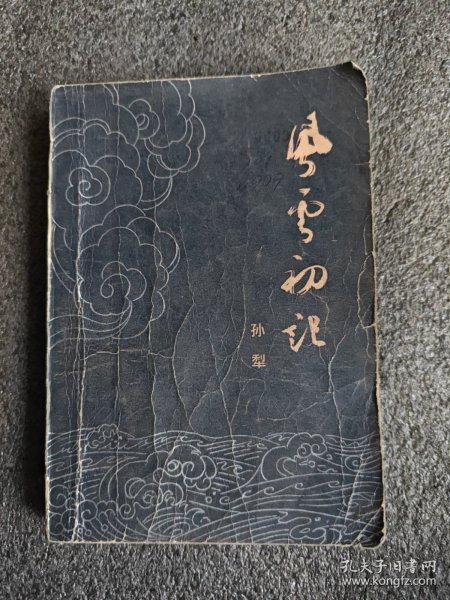 风云初记
孙犁
孔夫子旧书网
www.kongfz.com